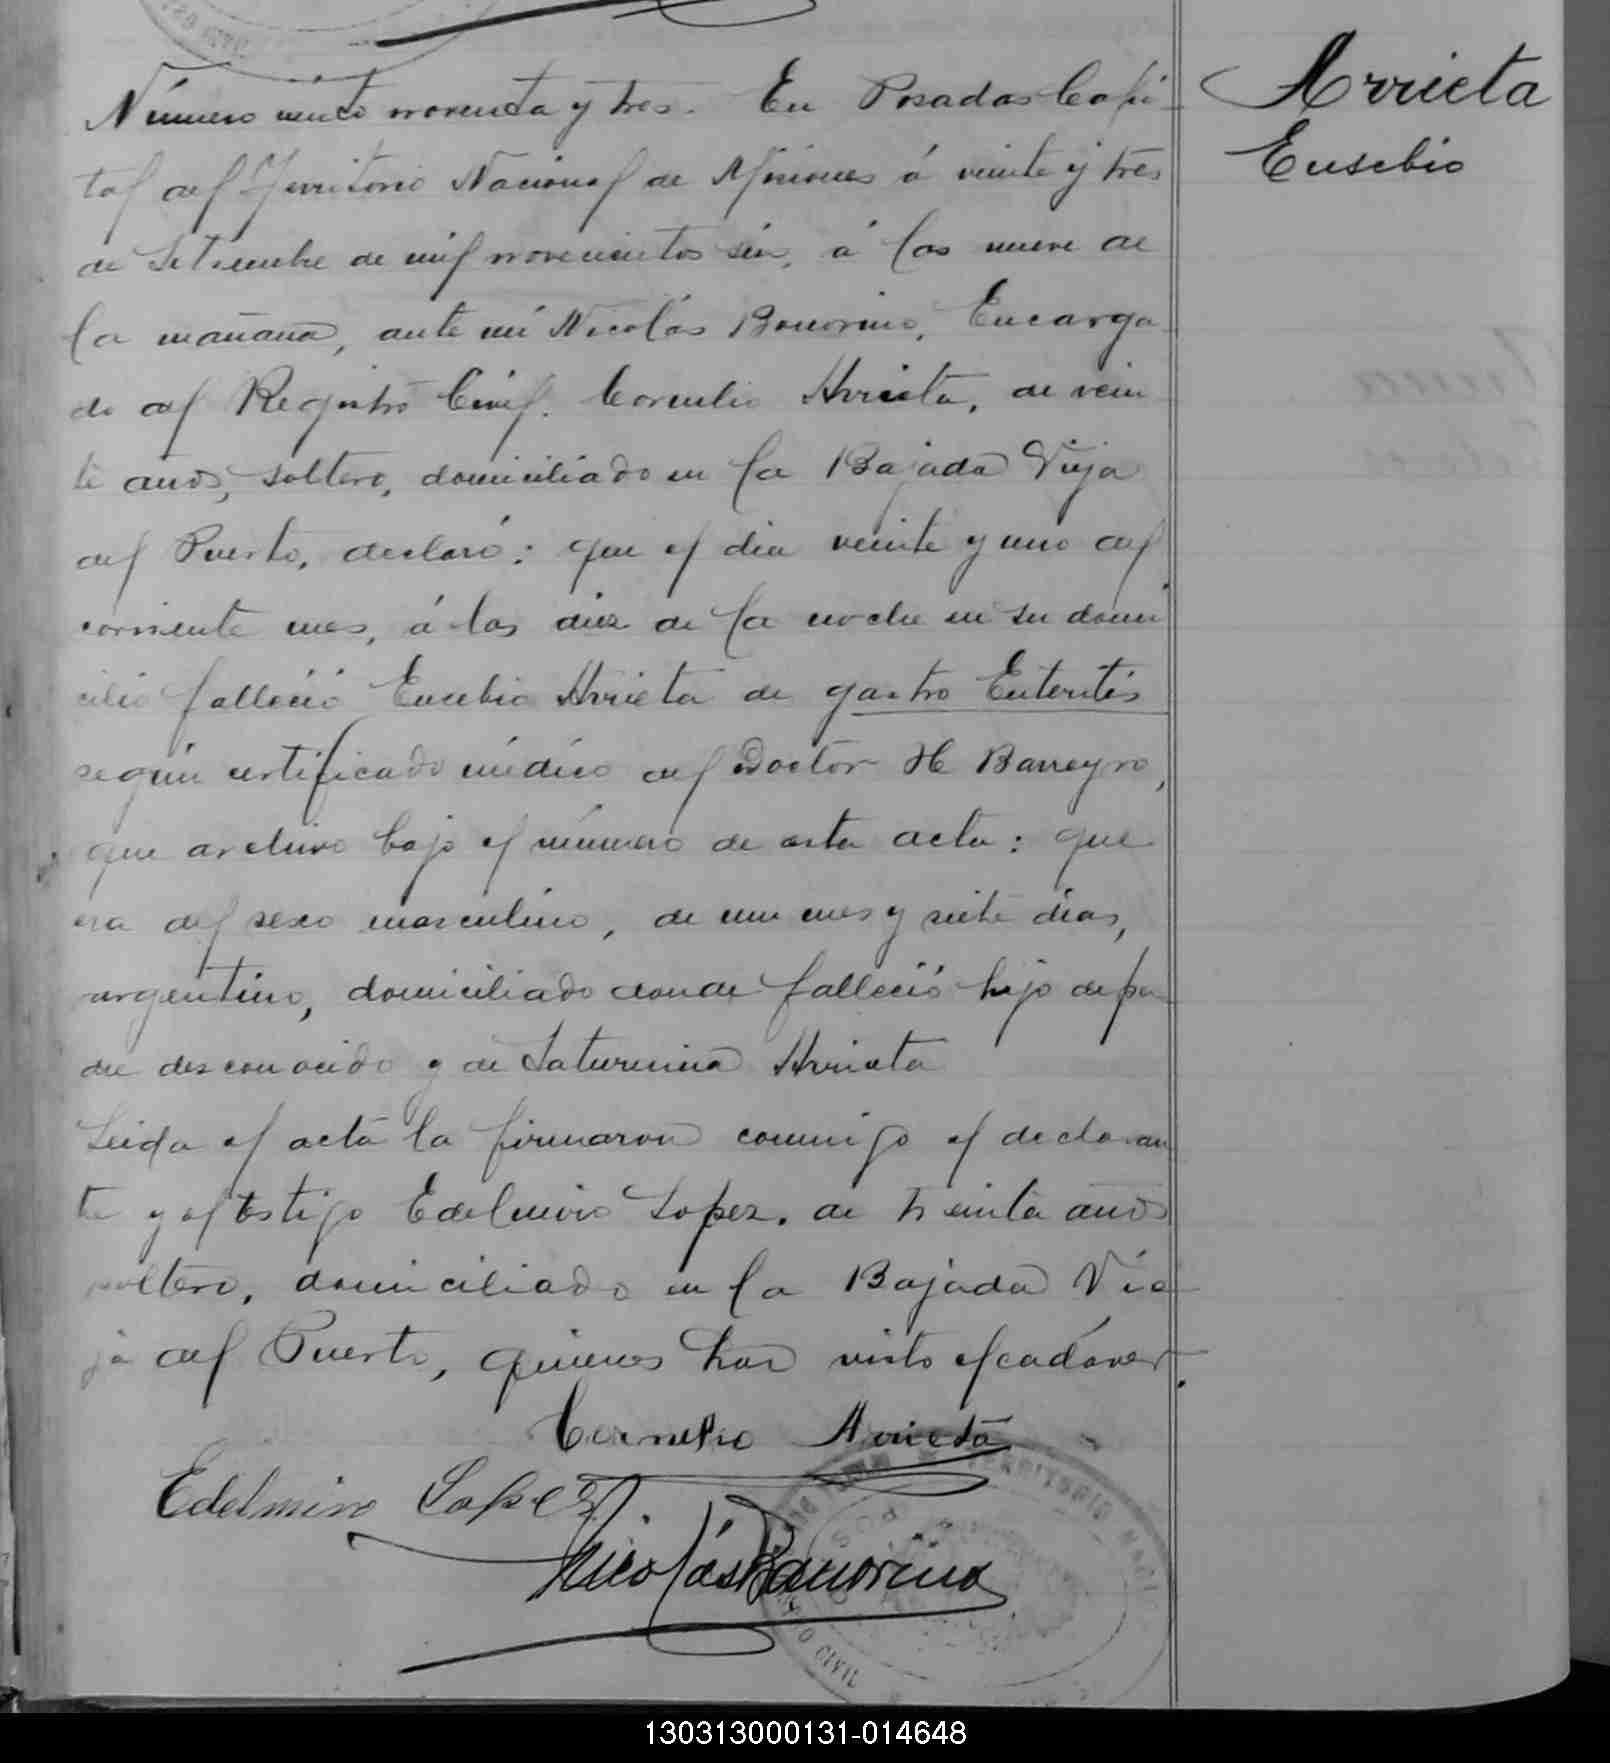 Arrieta
Eusebio
Número ciento noventa y tres. En Posadas Capi-
tal del Territorio Nacional de Misiones á veinte y tres
de Setiembre de mil novecientos seis, á las nueve de
la mañana, ante mi Nicolás Bonorino, Encarga-
do del Registro Civil. Cornelio Arrieta, de vein
te años, soltero, domiciliado en la Bajada Vieja
del Puerto, declaró: que el dia veinte y uno del
corriente mes, á las diez de la noche en su domi
cilio falleció Eusebio Arrieta de gastro Enteritis
según certificado médico del Doctor H Barreyro,
que archivo bajo el número de esta acta: que
era del sexo masculino, de un mes y siete dias,
argentino, domiciliado donde falleció hijo de pa-
dre desconocido y de Saturnina Arrieta
Leida el acta la firmaron conmigo el declaran
te y el testigo Edelmiro Lopez. de treinta años
soltero, domiciliado en la Bajada Vie
ja del Puerto, quienes han visto el cadáver.
Cornelio Arrieta
Edelmiro Lopez
Nicolás Bonorino
CIVIL
130313000131-014648